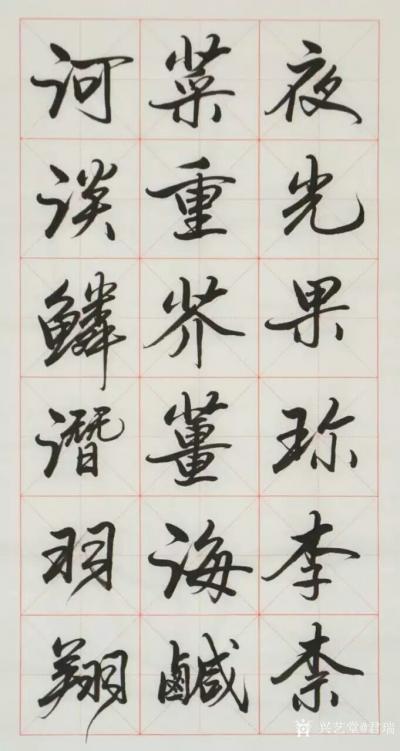 夜光果珍李柰
菜重芥薑海鹹
河淡鱗潛羽翔
兴艺堂@君瑞